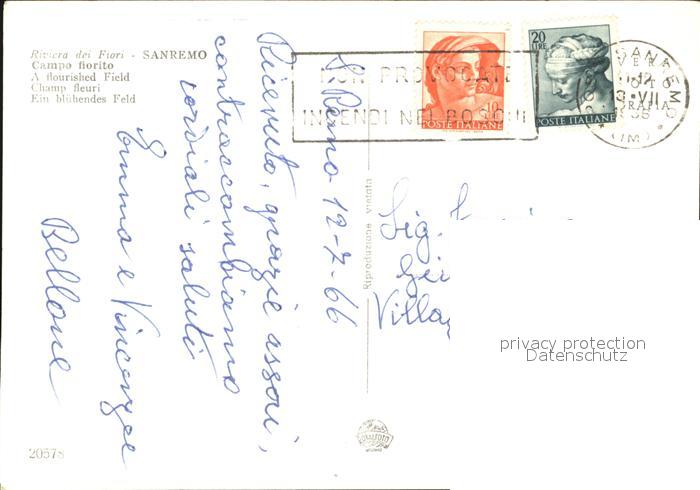 Riviera dei Fiori - SANREMO
Campo fiorito
A flourished Field
Champ fleuri
Ein blühendes Feld
S. Remo 12-7-66
Ricevuto, grazie assai,
contraccambiamo
cordiali saluti
Emma e Vincenzo
Bellone
NON PROVOCATE
INCENDI NEI BOSCHI
10
POSTE ITALIANE
20
LIRE
POSTE ITALIANE
SANREMO
(IM)
Riproduzione vietata
Sig.
Villa
privacy protection
Datenschutz
20578